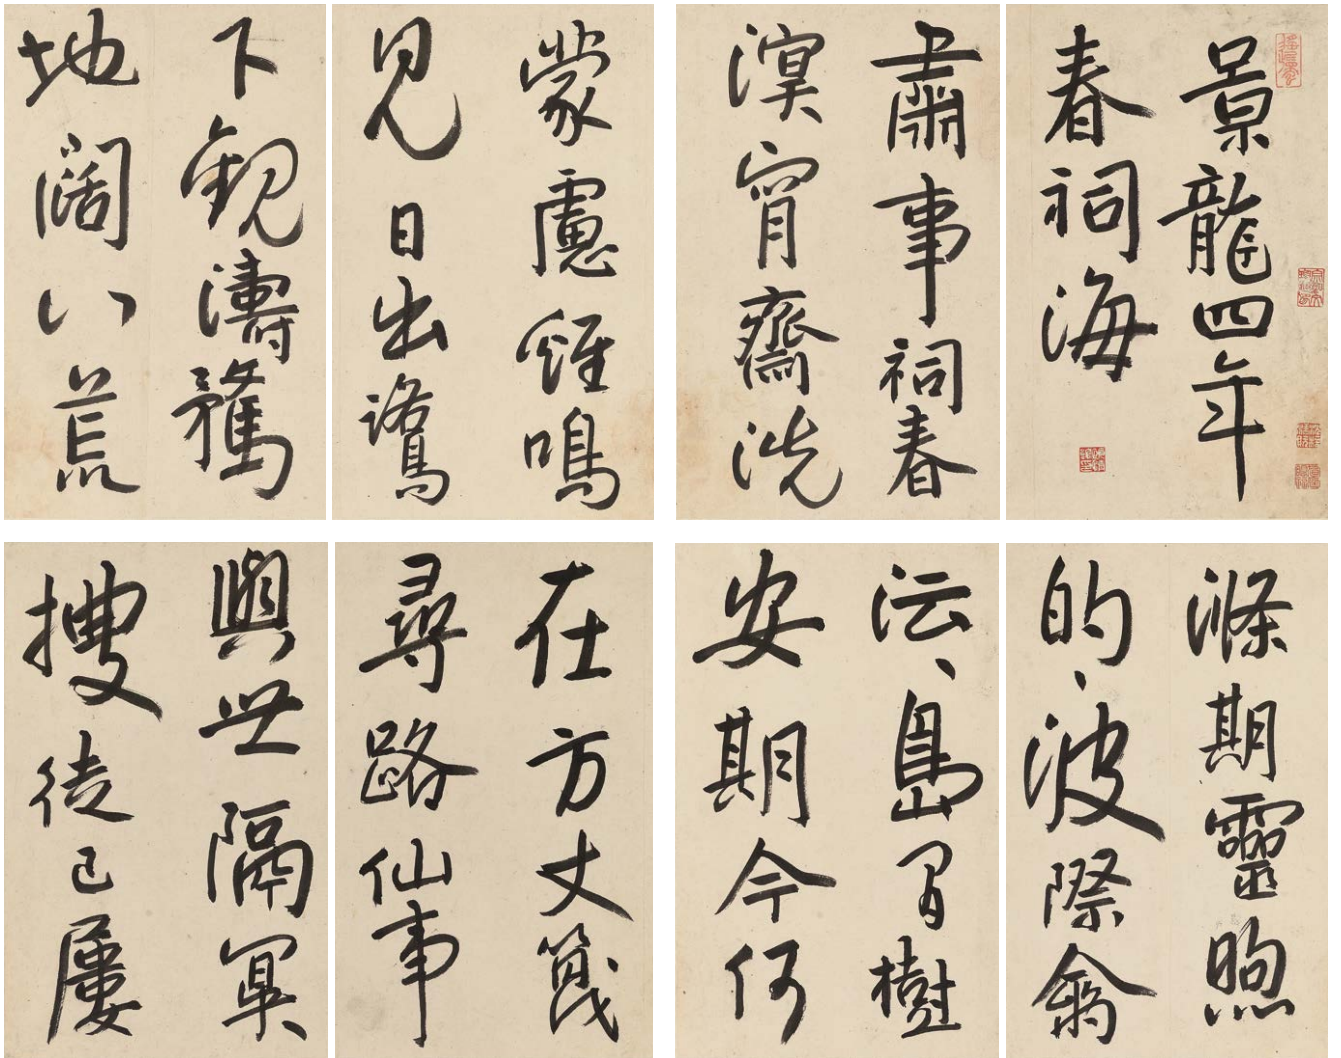 景龍四年
春祠海
肅事祠春
溟宵齋洗
蒙慮雞鳴
見日出鷺
下觀濤騖
地闊八荒
滌期靈煦
的、波際禽
沄、島間樹
安期今何
在方丈篾
尋路仙事
與世隔冥
搜徒已屢